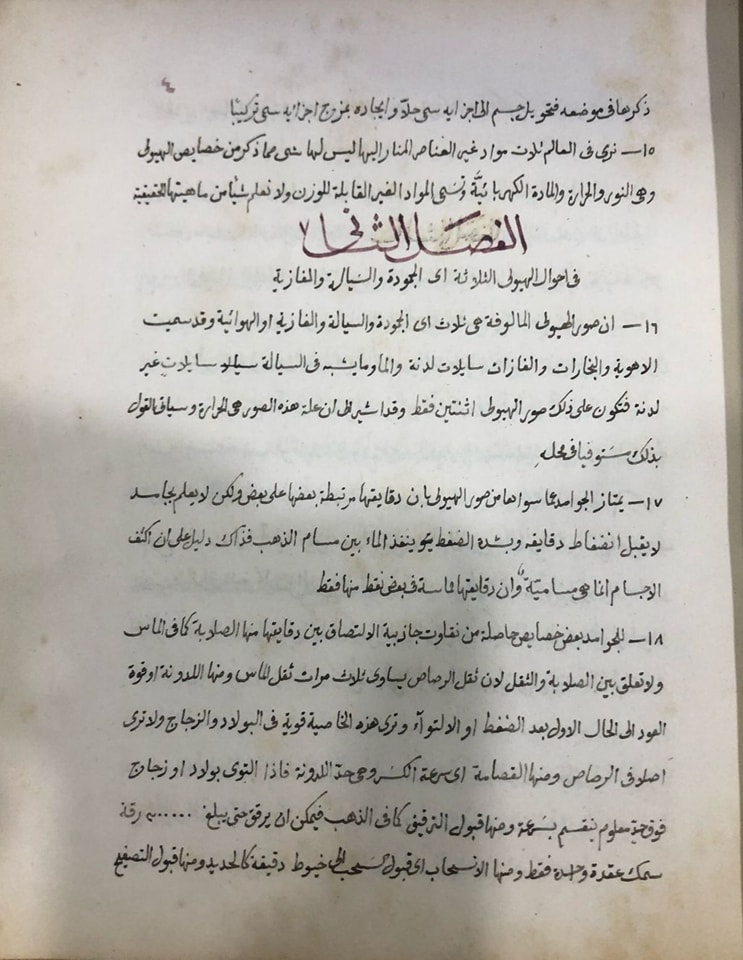 ٤
ذكرها فى موضعه فتحويل جسم الى اجزايه سمى حلاً و ايجاده بمزج اجزايه سمى تركيبًا
١٥— نرى فى العالم ثلاث مواد غير العناصر المشار اليها ليس لها شى مما ذكر من خصايص الهيولى
وهى النور والحرارة والمادة الكهربائية وتسمى المواد الغير القابلة للوزن ولا نعلم شيًا من ماهيتها الحقيقية
الفصل الثانى
فى احوال الهيولى الثلاثة اى الجمودة والسيالة والغازية
١٦— ان صور الهيولى المالوفة هى ثلاث اى الجمودة والسيالة والغازية او الهوائية وقد سميت
الاهوية والبخارات والغازات سايلات لدنة والما وما يشبه فى السيالة سايلات غير
لدنة فتكون على ذلك صور الهيولى اثنتين فقط وقد اشير الى ان علة هذه الصور هى الحرارة و سياق القول
بذلك مستوفيا فى محله
١٧— يمتاز الجوامد عما سواها من صور الهيولى بان دقايقها مرتبطة بعضها على بعض ولكن لا يعلم بجامد
لا يقبل انضغاط دقايقه و بشدة الضغط ينفذ الماء بين مسام الذهب فذاك دليل على ان اكثف
الاجسام انما هى مسامية وان دقايقها مماسة فى بعض نقط منها فقط
١٨— للجوامد بعض خصايص حاصلة من تفاوت جاذبية الالتصاق بين دقايقها منها الصلابة كما فى الماس
ولا تعلق بين الصلابة والثقل لان ثقل الرصاص يساوى ثلاث مرات ثقل الماس ومنها اللدونة او قوة
العود الى الحال الاول بعد الضغط او الالتوآء و ترى هذه الخاصية قوية فى البولاد والزجاج ولا ترى
اصلا فى الرصاص ومنها القصامة اى سرعة الكسر وهى حد اللدونة فاذا التوى بولاد او زجاج
فوق حد معلوم ينقسم بسرعة ومنها قبول الترقيق كما فى الذهب فيمكن ان يرقق حتى يبلغ رقة
سمك عقدة واحدة فقط ومنها الانسحاب اى قبول السحب الى خيوط دقيقة كالحديد ومنها قبول التصفيح